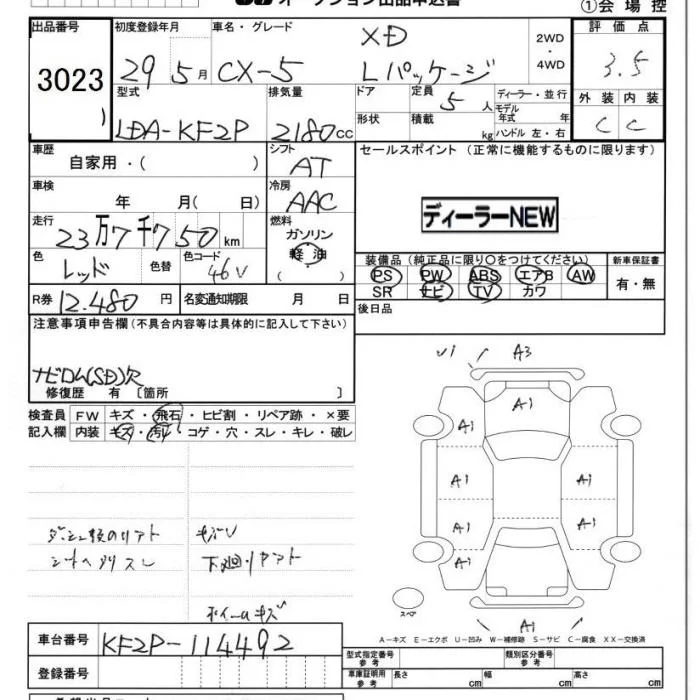 オークション出品申込書
①会場控
出品番号 初度登録年月 車名・グレード 評価点
3023
29年5月 CX-5 XD Lパッケージ 2WD・4WD 3.5
型式 排気量 ドア 定員 5人 ディーラー・並行 外装 内装
LDA-KF2P 2180cc 形状 積載 kg モデル年式 年 ハンドル 左・右 C C
車歴 自家用・( ) シフト AT セールスポイント (正常に機能するものに限ります)
車検 年 月( 日) 冷房 AAC
ディーラーNEW
走行 23万7千750km 燃料 ガソリン 軽油 ( )
色 レッド 色替 色コード 46V
装備品 (純正品に限り○をつけてください) 新車保証書
PS PW ABS エアB AW 有・無
SR ナビ TV カワ
R券 12.480円 名変通知期限 月 日 後日品
注意事項申告欄(不具合内容等は具体的に記入して下さい)
ナビロム(SD)欠
修復歴 有 〔箇所 〕
検査員 FW キズ・飛石・ヒビ割・リペア跡・×要
記入欄 内装 キズ・汚レ・コゲ・穴・スレ・キレ・破レ
A3
A1
A1 A1
A1 A1
A1 A1
A1
A1
スペア
下廻リサビ
ホイールキズ
A-キズ E-エクボ U-凹み W-補修跡 S-サビ C-腐食 XX-交換済
車台番号 KF2P-114492
型式指定番号 参考 類別区分番号 参考
登録番号 車庫証明用 参考 長さ cm 幅 cm 高さ cm